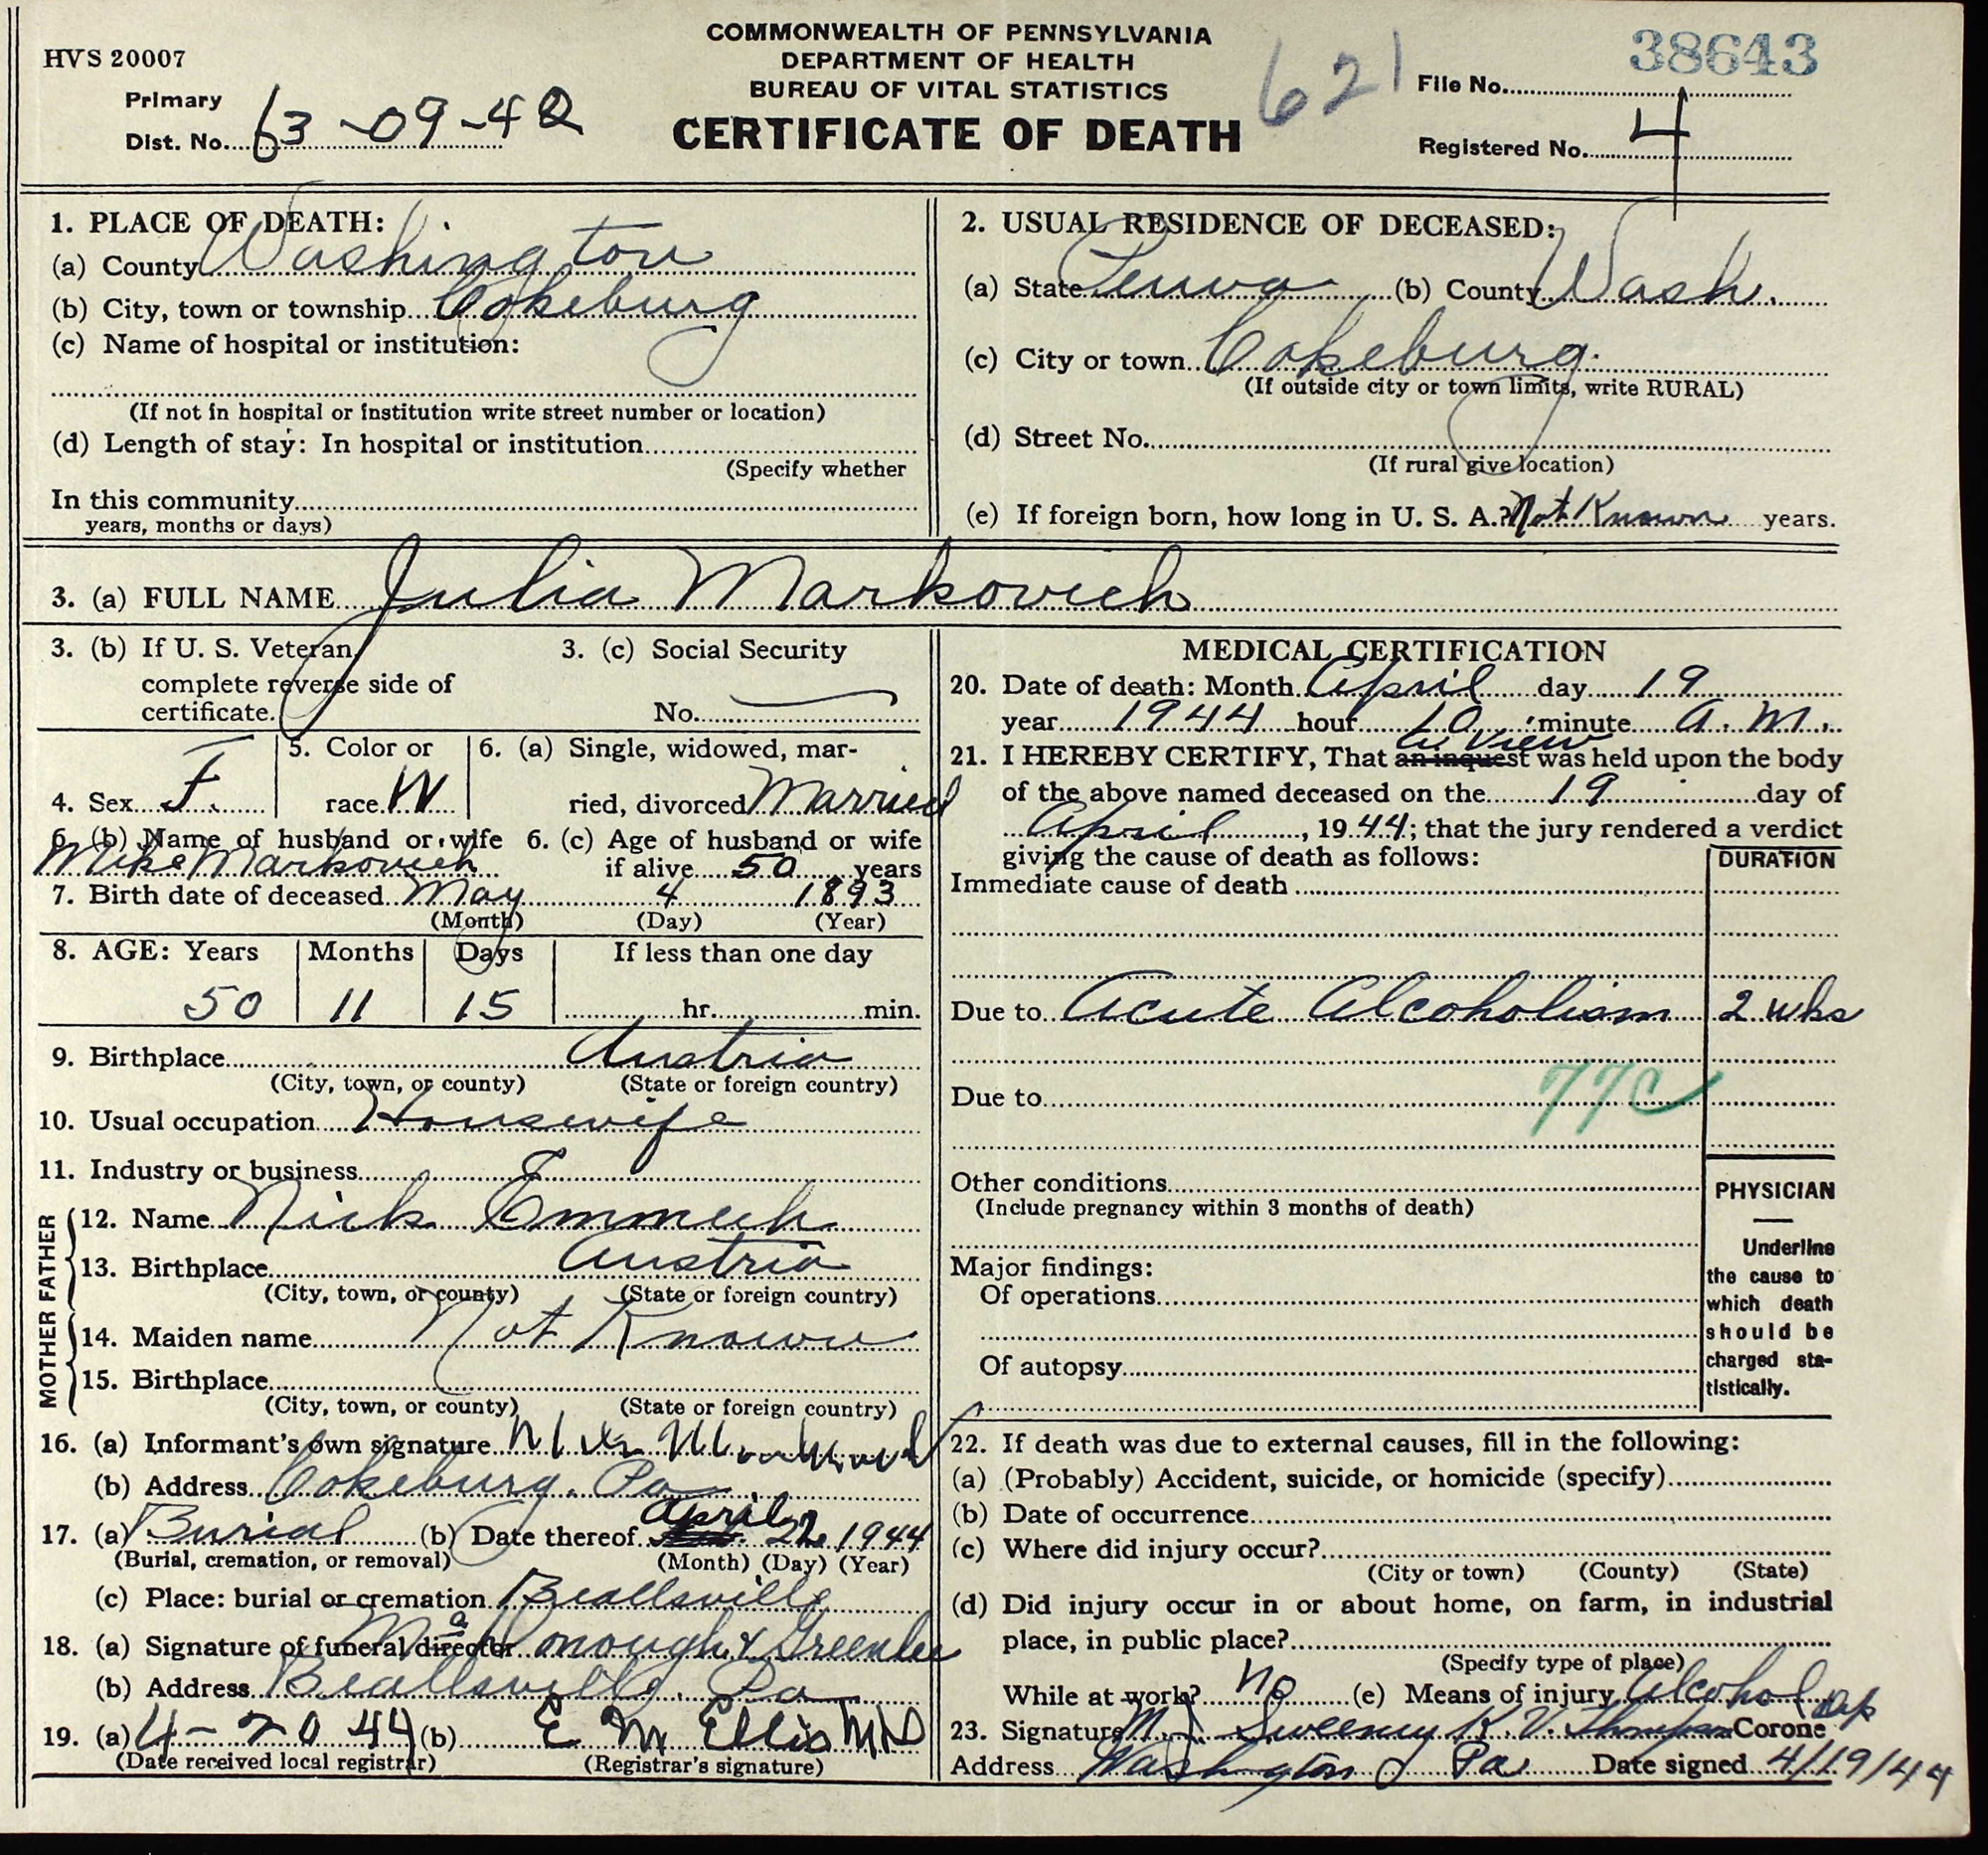 COMMONWEALTH OF PENNSYLVANIA
DEPARTMENT OF HEALTH
BUREAU OF VITAL STATISTICS
CERTIFICATE OF DEATH
HVS 20007
Primary
Dist. No. 63-09-42
621
38643
File No.
Registered No. 4
1. PLACE OF DEATH:
(a) County Washington
(b) City, town or township Cokeburg
(c) Name of hospital or institution:
(If not in hospital or institution write street number or location)
(d) Length of stay: In hospital or institution
(Specify whether
In this community
years, months or days)
2. USUAL RESIDENCE OF DECEASED:
(a) State Penna (b) County Wash.
(c) City or town Cokeburg.
(If outside city or town limits, write RURAL)
(d) Street No.
(If rural give location)
(e) If foreign born, how long in U. S. A.? Not Known years.
3. (a) FULL NAME Julia Markovich
3. (b) If U. S. Veteran,
complete reverse side of
certificate.
3. (c) Social Security
No. —
4. Sex F.
5. Color or
race W
6. (a) Single, widowed, mar-
ried, divorced Married
6. (b) Name of husband or wife
Mike Markovich
6. (c) Age of husband or wife
if alive 50 years
7. Birth date of deceased May 4 1893
(Month) (Day) (Year)
8. AGE: Years Months Days If less than one day
50 11 15 hr. min.
9. Birthplace Austria
(City, town, or county) (State or foreign country)
10. Usual occupation Housewife
11. Industry or business
FATHER
12. Name Nick Emmech
13. Birthplace Austria
(City, town, or county) (State or foreign country)
MOTHER
14. Maiden name Not Known
15. Birthplace
(City, town, or county) (State or foreign country)
16. (a) Informant's own signature
(b) Address Cokeburg. Pa
17. (a) Burial (b) Date thereof April 22, 1944
(Burial, cremation, or removal) (Month) (Day) (Year)
(c) Place: burial or cremation Beallsville
18. (a) Signature of funeral director & Greenlee
(b) Address Beallsville, Pa
19. (a) 4-20 44 (b) E M Ellis MD
(Date received local registrar) (Registrar's signature)
MEDICAL CERTIFICATION
20. Date of death: Month April day 19
year 1944 hour 10 minute A.M.
21. I HEREBY CERTIFY, That an inquest view was held upon the body
of the above named deceased on the 19 day of
April, 1944; that the jury rendered a verdict
giving the cause of death as follows:
DURATION
Immediate cause of death
Due to Acute Alcoholism 2 wks
Due to 77c
Other conditions
(Include pregnancy within 3 months of death)
Major findings:
Of operations
Of autopsy
PHYSICIAN
Underline
the cause to
which death
should be
charged sta-
tistically.
22. If death was due to external causes, fill in the following:
(a) (Probably) Accident, suicide, or homicide (specify)
(b) Date of occurrence
(c) Where did injury occur?
(City or town) (County) (State)
(d) Did injury occur in or about home, on farm, in industrial
place, in public place?
(Specify type of place)
While at work? no (e) Means of injury Alcohol
23. Signature M. J. Sweeney K. V. Thompson Corone
Address Washington Pa Date signed 4/19/44